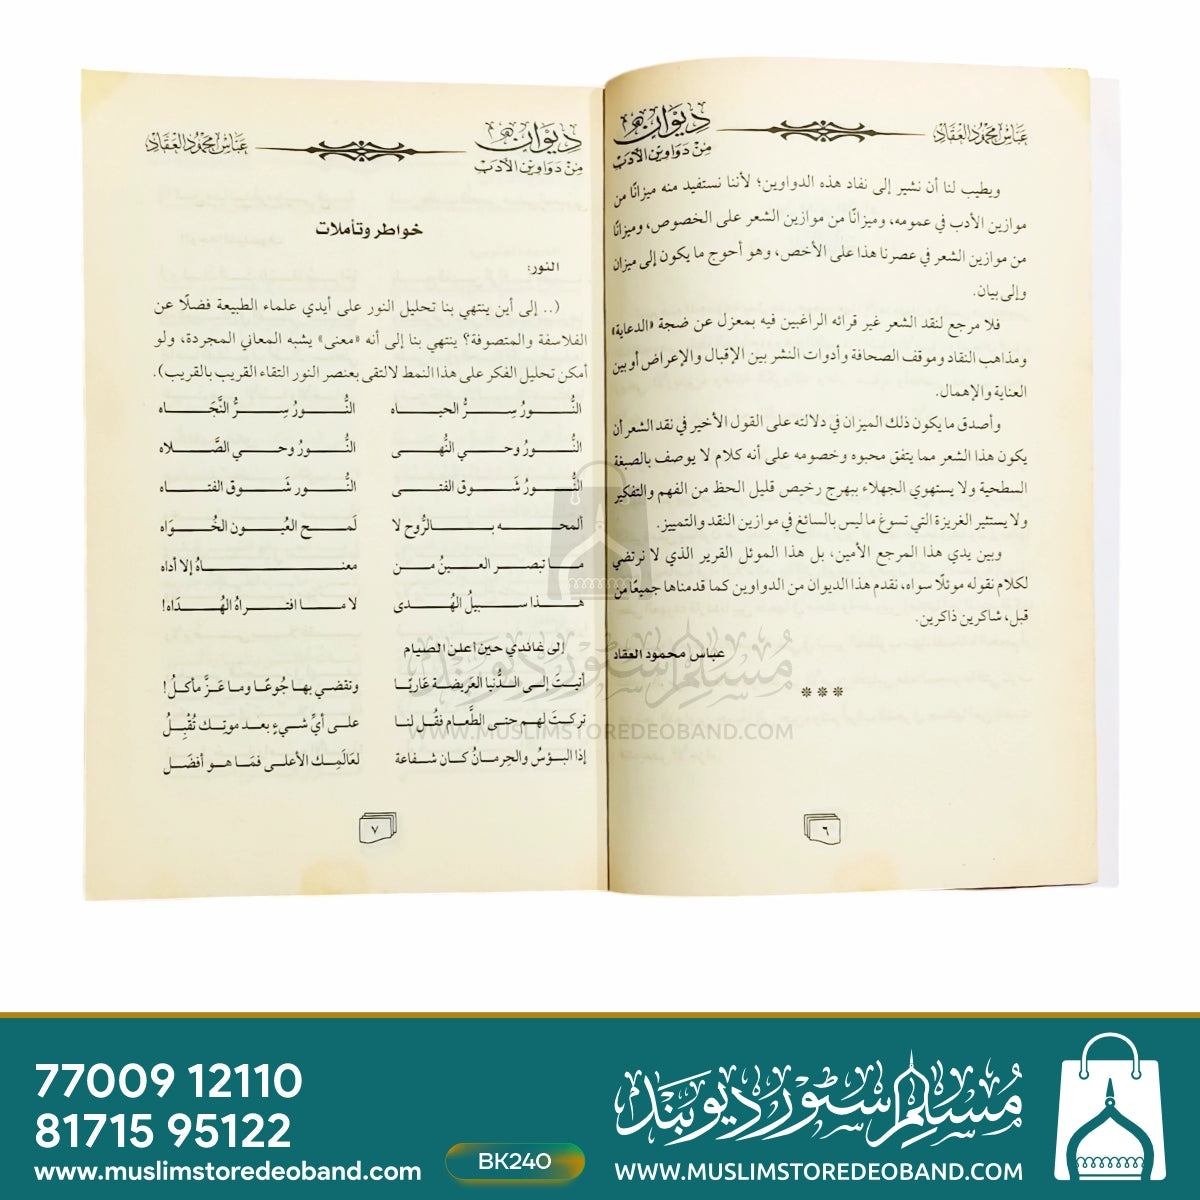 عباس محمود العقاد
ديوان
من دواوين الأدب
ويطيب لنا أن نشير إلى نفاد هذه الدواوين؛ لأننا نستفيد منه ميزانًا من
موازين الأدب في عمومه، وميزانًا من موازين الشعر على الخصوص، وميزانًا
من موازين الشعر في عصرنا هذا على الأخص، وهو أحوج ما يكون إلى ميزان
وإلى بيان.
فلا مرجع لنقد الشعر غير قرائه الراغبين فيه بمعزل عن ضجة «الدعاية»
ومذاهب النقاد وموقف الصحافة وأدوات النشر بين الإقبال والإعراض أو بين
العناية والإهمال.
وأصدق ما يكون ذلك الميزان في دلالته على القول الأخير في نقد الشعر أن
يكون هذا الشعر مما يتفق محبوه وخصومه على أنه كلام لا يوصف بالصبغة
السطحية ولا يستهوي الجهلاء ببهرج رخيص قليل الحظ من الفهم والتفكير
ولا يستثير الغريزة التي تسوغ ما ليس بالسائغ في موازين النقد والتمييز.
وبين يدي هذا المرجع الأمين، بل هذا الموئل القرير الذي لا نرتضي
لكلام نقوله موئلًا سواه، نقدم هذا الديوان من الدواوين كما قدمناها جميعًا من
قبل، شاكرين ذاكرين.
عباس محمود العقاد
***
٦
ديوان
من دواوين الأدب
عباس محمود العقاد
خواطر وتأملات
النور:
(.. إلى أين ينتهي بنا تحليل النور على أيدي علماء الطبيعة فضلًا عن
الفلاسفة والمتصوفة؟ ينتهي بنا إلى أنه «معنى» يشبه المعاني المجردة، ولو
أمكن تحليل الفكر على هذا النمط لالتقى بعنصر النور التقاء القريب بالقريب).
النُّورُ سِرُّ الحياه النُّورُ سِرُّ النَّجَاه
النُّورُ وحي النُّهى النُّورُ وحي الصَّلاه
النُّورُ شَوق الفتى النُّور شَوق الفتاه
ألمحه بالرُّوح لا لَمح العُيون الخُوَاه
ما تبصر العينُ من معناهُ إلا أداه
هذا سبيلُ الهُدى لا ما افتراهُ الهُدَاه!
إلى غاندي حين أعلن الصيام
أتيتَ إلى الدُّنيا العَريضة عَاريًا وتقضي بها جُوعًا وما عَزَّ مأكلُ!
تركتَ لهم حتى الطَّعام فقُل لنا على أيِّ شيءٍ بعد موتِك تُقْبِلُ
إذا البؤسُ والحِرمانُ كان شفاعة لعَالَمِك الأعلى فمَا هو أفضَل
٧
مسلم سٹور دیوبند
WWW.MUSLIMSTOREDEOBAND.COM
77009 12110
81715 95122
www.muslimstoredeoband.com
BK240
مسلم سٹور دیوبند
WWW.MUSLIMSTOREDEOBAND.COM